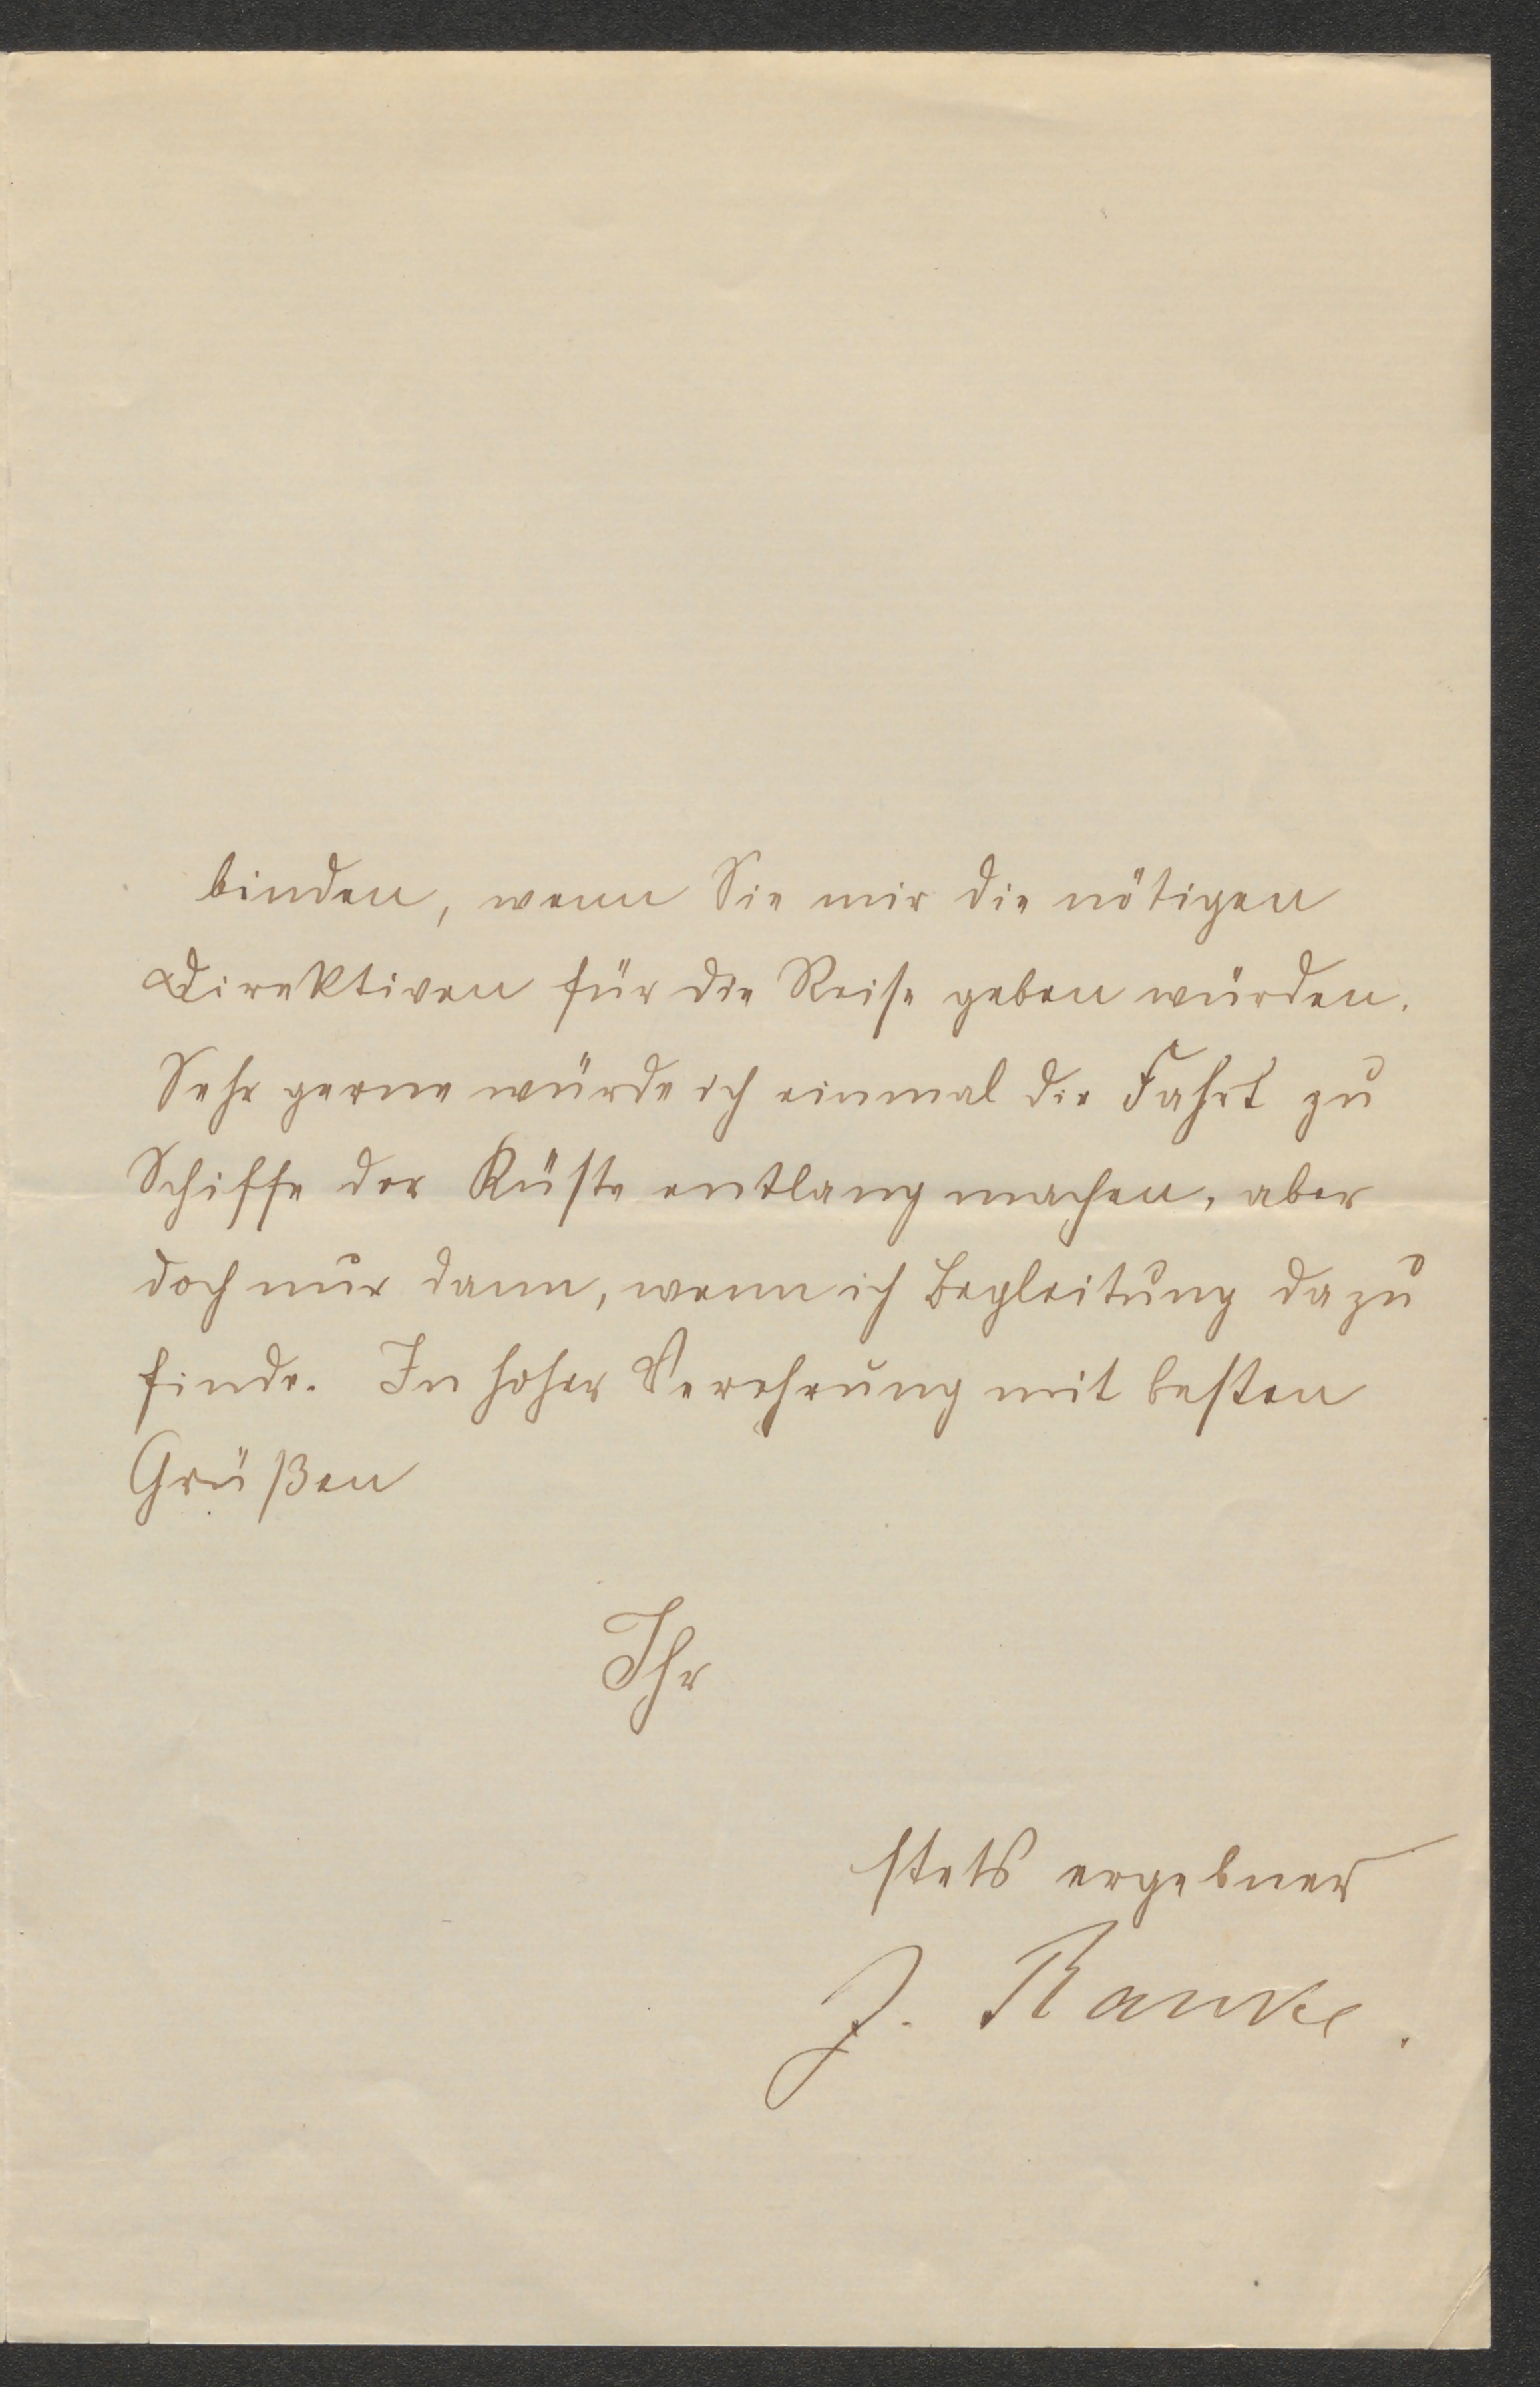 binden, wenn Sie mir die nötigen
Direktiven für die Reise geben würden.
Sehr gerne würde ich einmal die Fahrt zu
Schiffe der Küste entlang machen, aber
doch nur dann, wenn ich Begleitung dazu
finde. In hoher Verehrung mit besten
Grüßen
Ihr
stets ergebner
J. Ranke.